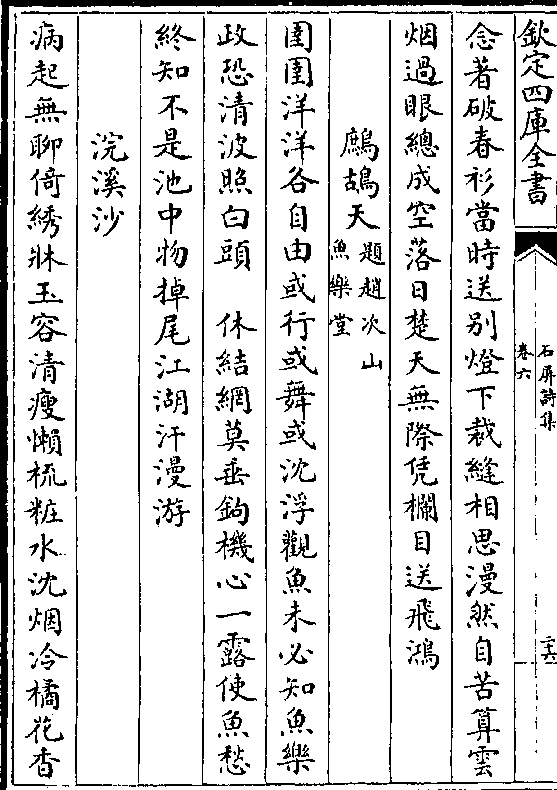 欽定四庫全書
石屏詩集
卷六
二六
念著破春衫當時送别燈下裁縫相思漫然自苦算雲
烟過眼總成空落日楚天無際凭欄目送飛鴻
鷓鴣天題趙次山
魚樂堂
圉圉洋洋各自由或行或舞或沈浮觀魚未必知魚樂
政恐清波照白頭　休結網莫垂鉤機心一露使魚愁
終知不是池中物掉尾江湖汗漫游
浣溪沙
病起無聊倚綉牀玉容清瘦懶梳粧水沈烟冷橘花香